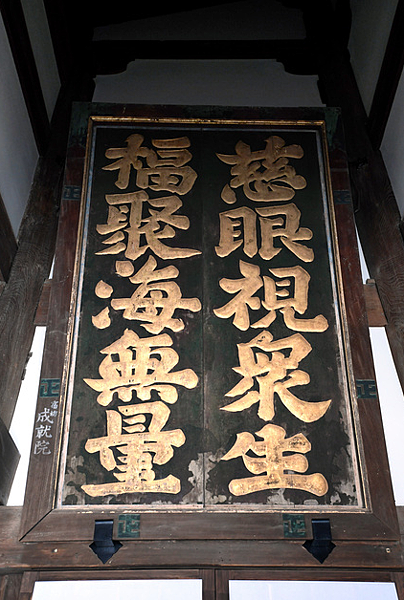 慈眼視衆生
福聚海無量
成就院